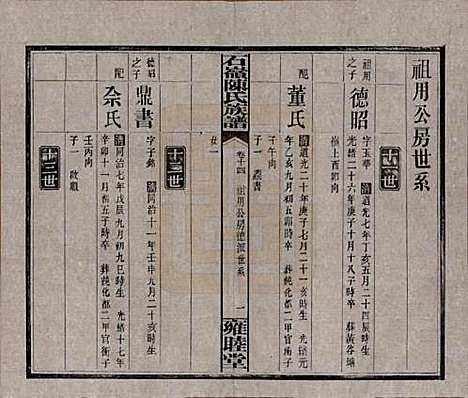 祖用公房世系
十一世
祖用
之子
德昭
字玉華 清道光七年丁亥五月二十四辰時生
光緒二十六年庚子十月十八子時卒 葬黃谷塘
嶺上酉卯向
配
董氏
清道光二十年庚子七月二十一亥時生 光緒元
年乙亥九月初五卯時卒 葬純化都二甲官衙子
子午向
子一 鼎書
女一
石嶺陳氏族譜
卷十四
祖用公房德派世系
一
雍睦堂
十二世
德昭
之子
鼎書
字子錦 清同治十一年壬申九月二十亥時生
配
余氏
清同治七年戊辰九月初九巳時生 光緒十七年
辛卯十一月初五子時卒 葬純化都二甲官衙子
壬丙向
子一 啟順
十三世